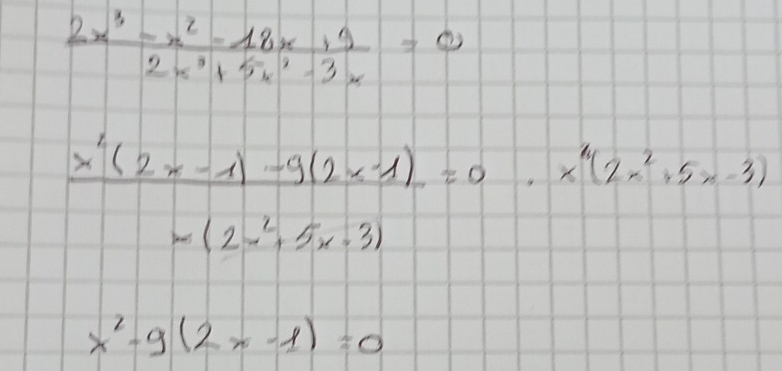 2x³ - x² - 18x + 9 = 0
2x³ + 5x² - 3x
x²(2x - 1) - 9(2x - 1) = 0 . x(2x² + 5x - 3)
x(2x² + 5x - 3)
x² - 9(2x - 1) = 0